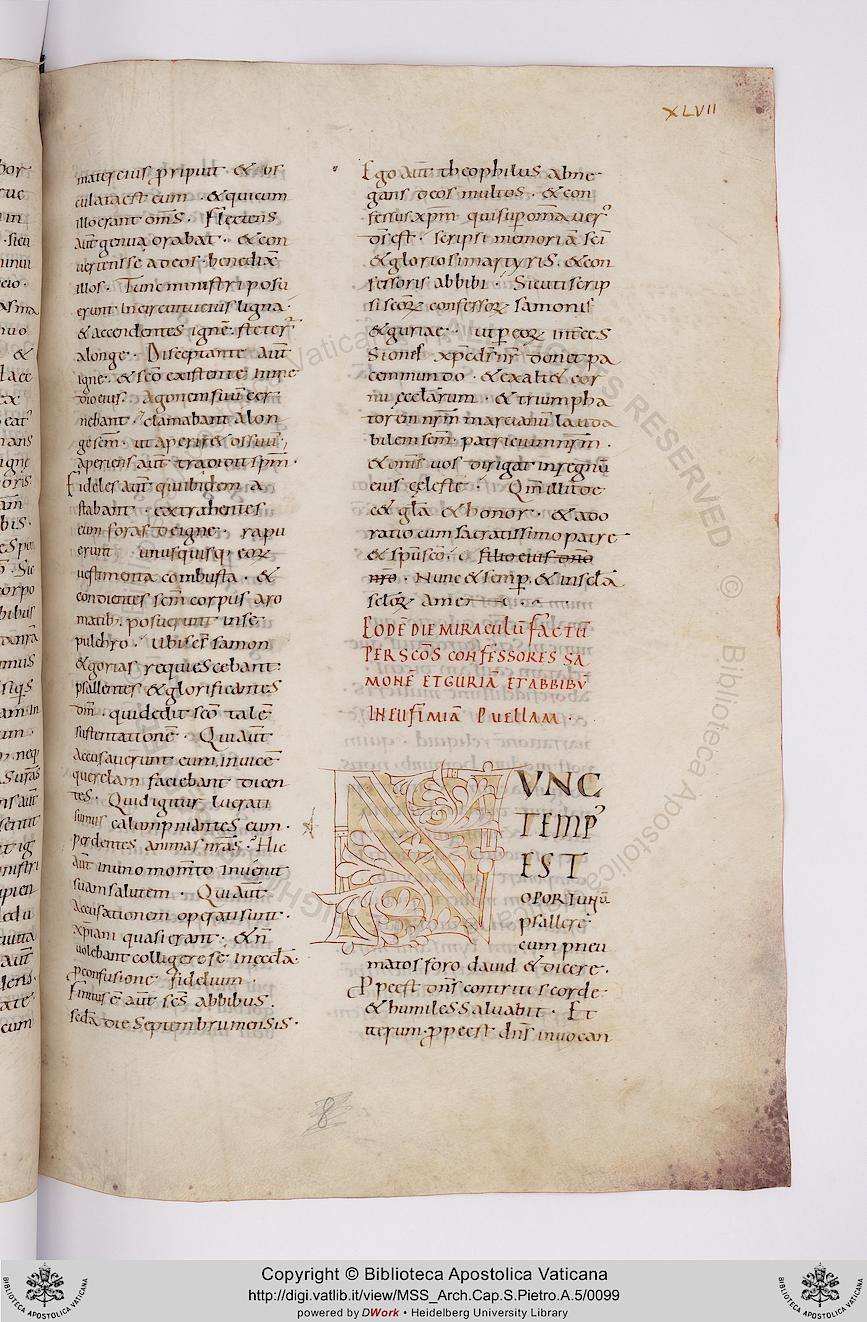 XLVII
mater eius p̄ripuit · & os
culata est eum · & qui cum
illo erant om̄s · Flectens
aut̄ genua orabat · & con
uertens se ad eos · benedix̄
illos · Tunc ministri posu
erunt in circuitu eius ligna ·
& accendentes ignē · steter̄
alonge · Disceptante aut̄
igne · & sc̄o existente in me
dio eius · agonem suum cer
nebant · & clamabant alon
ge sc̄m · ut aperir& os suū ·
aperiens aut̄ tradidit sp̄m ·
Fideles aut̄ qui ibidem a
stabant · extrahentes
eum foras de igne · rapu
erunt · unusquisq; eoꝝ
uestimenta combusta · &
condientes sc̄m corpus aro
matib; posuerunt in se
pulchro · Ubi sc̄s samon
& gorias requiescebant ·
psallentes & glorificantes
dm̄ · qui dedit sc̄o talē
sustentationē · Qui aut̄
accusauerunt eum inuicē
querelam faciebant dicen
tes · Quid igitur lucrati
sumus calumpniantes eum ·
perdentes animas nr̄as · Hic
aut̄ in uno mom̄to inuenit
suam salutem · Qui aut̄
accusationem opposuerunt ·
xp̄iani quasi erant · & n̄
uolebant colligere se in eccl̄a ·
p̄ confusione fidelium ·
Finitus ē aut̄ sc̄s abbibus ·
secd̄a die septembrium ensis ·
Ego aut̄ theophilus abne
gans deos multos · & con
fessus xp̄m qui sup om̄a uer̄
ds̄ est · scripsi memoriā sc̄i
& gloriosi martyris · & con
fessoris abbibi · Sicuti scrip
si sc̄oꝝ confessoꝝ samonis
& guriae · ut p eoꝝ int̄ces
siones xp̄c ds̄ nr̄ donet pa
cem mundo · & exalt& cor
nu eccl̄arum · & triumpha
torem nr̄m marcianū lauda
bilem sc̄m patricium nr̄m ·
& om̄s uos dirigat in regnū
eius celeste · Qm̄ illi de
c& gl̄a & honor · & ado
ratio cum sacratissimo patre
& sp̄u sc̄o · filio eius dn̄o
nr̄o · Nunc & semp̄ & in scl̄a
scl̄oꝝ amen
EODĒ DIE MIRACULŪ FACTŪ
PER SCŌS CONFESSORES SA
MONĒ ET GURIĀ ET ABBIBŪ
IN EUFIMIĀ PUELLAM ·
NUNC
TEMP̄
EST
OPORTUNŪ
psallere
cum pneu
matoforo dauid & dicere ·
Ppe est dn̄s contritis corde
& humiles saluabit · Et
iterum p̄pe est dn̄s inuocan
Copyright © Biblioteca Apostolica Vaticana
http://digi.vatlib.it/view/MSS_Arch.Cap.S.Pietro.A.5/0099
powered by DWork • Heidelberg University Library
BIBLIOTECA APOSTOLICA VATICANA
BIBLIOTECA APOSTOLICA VATICANA